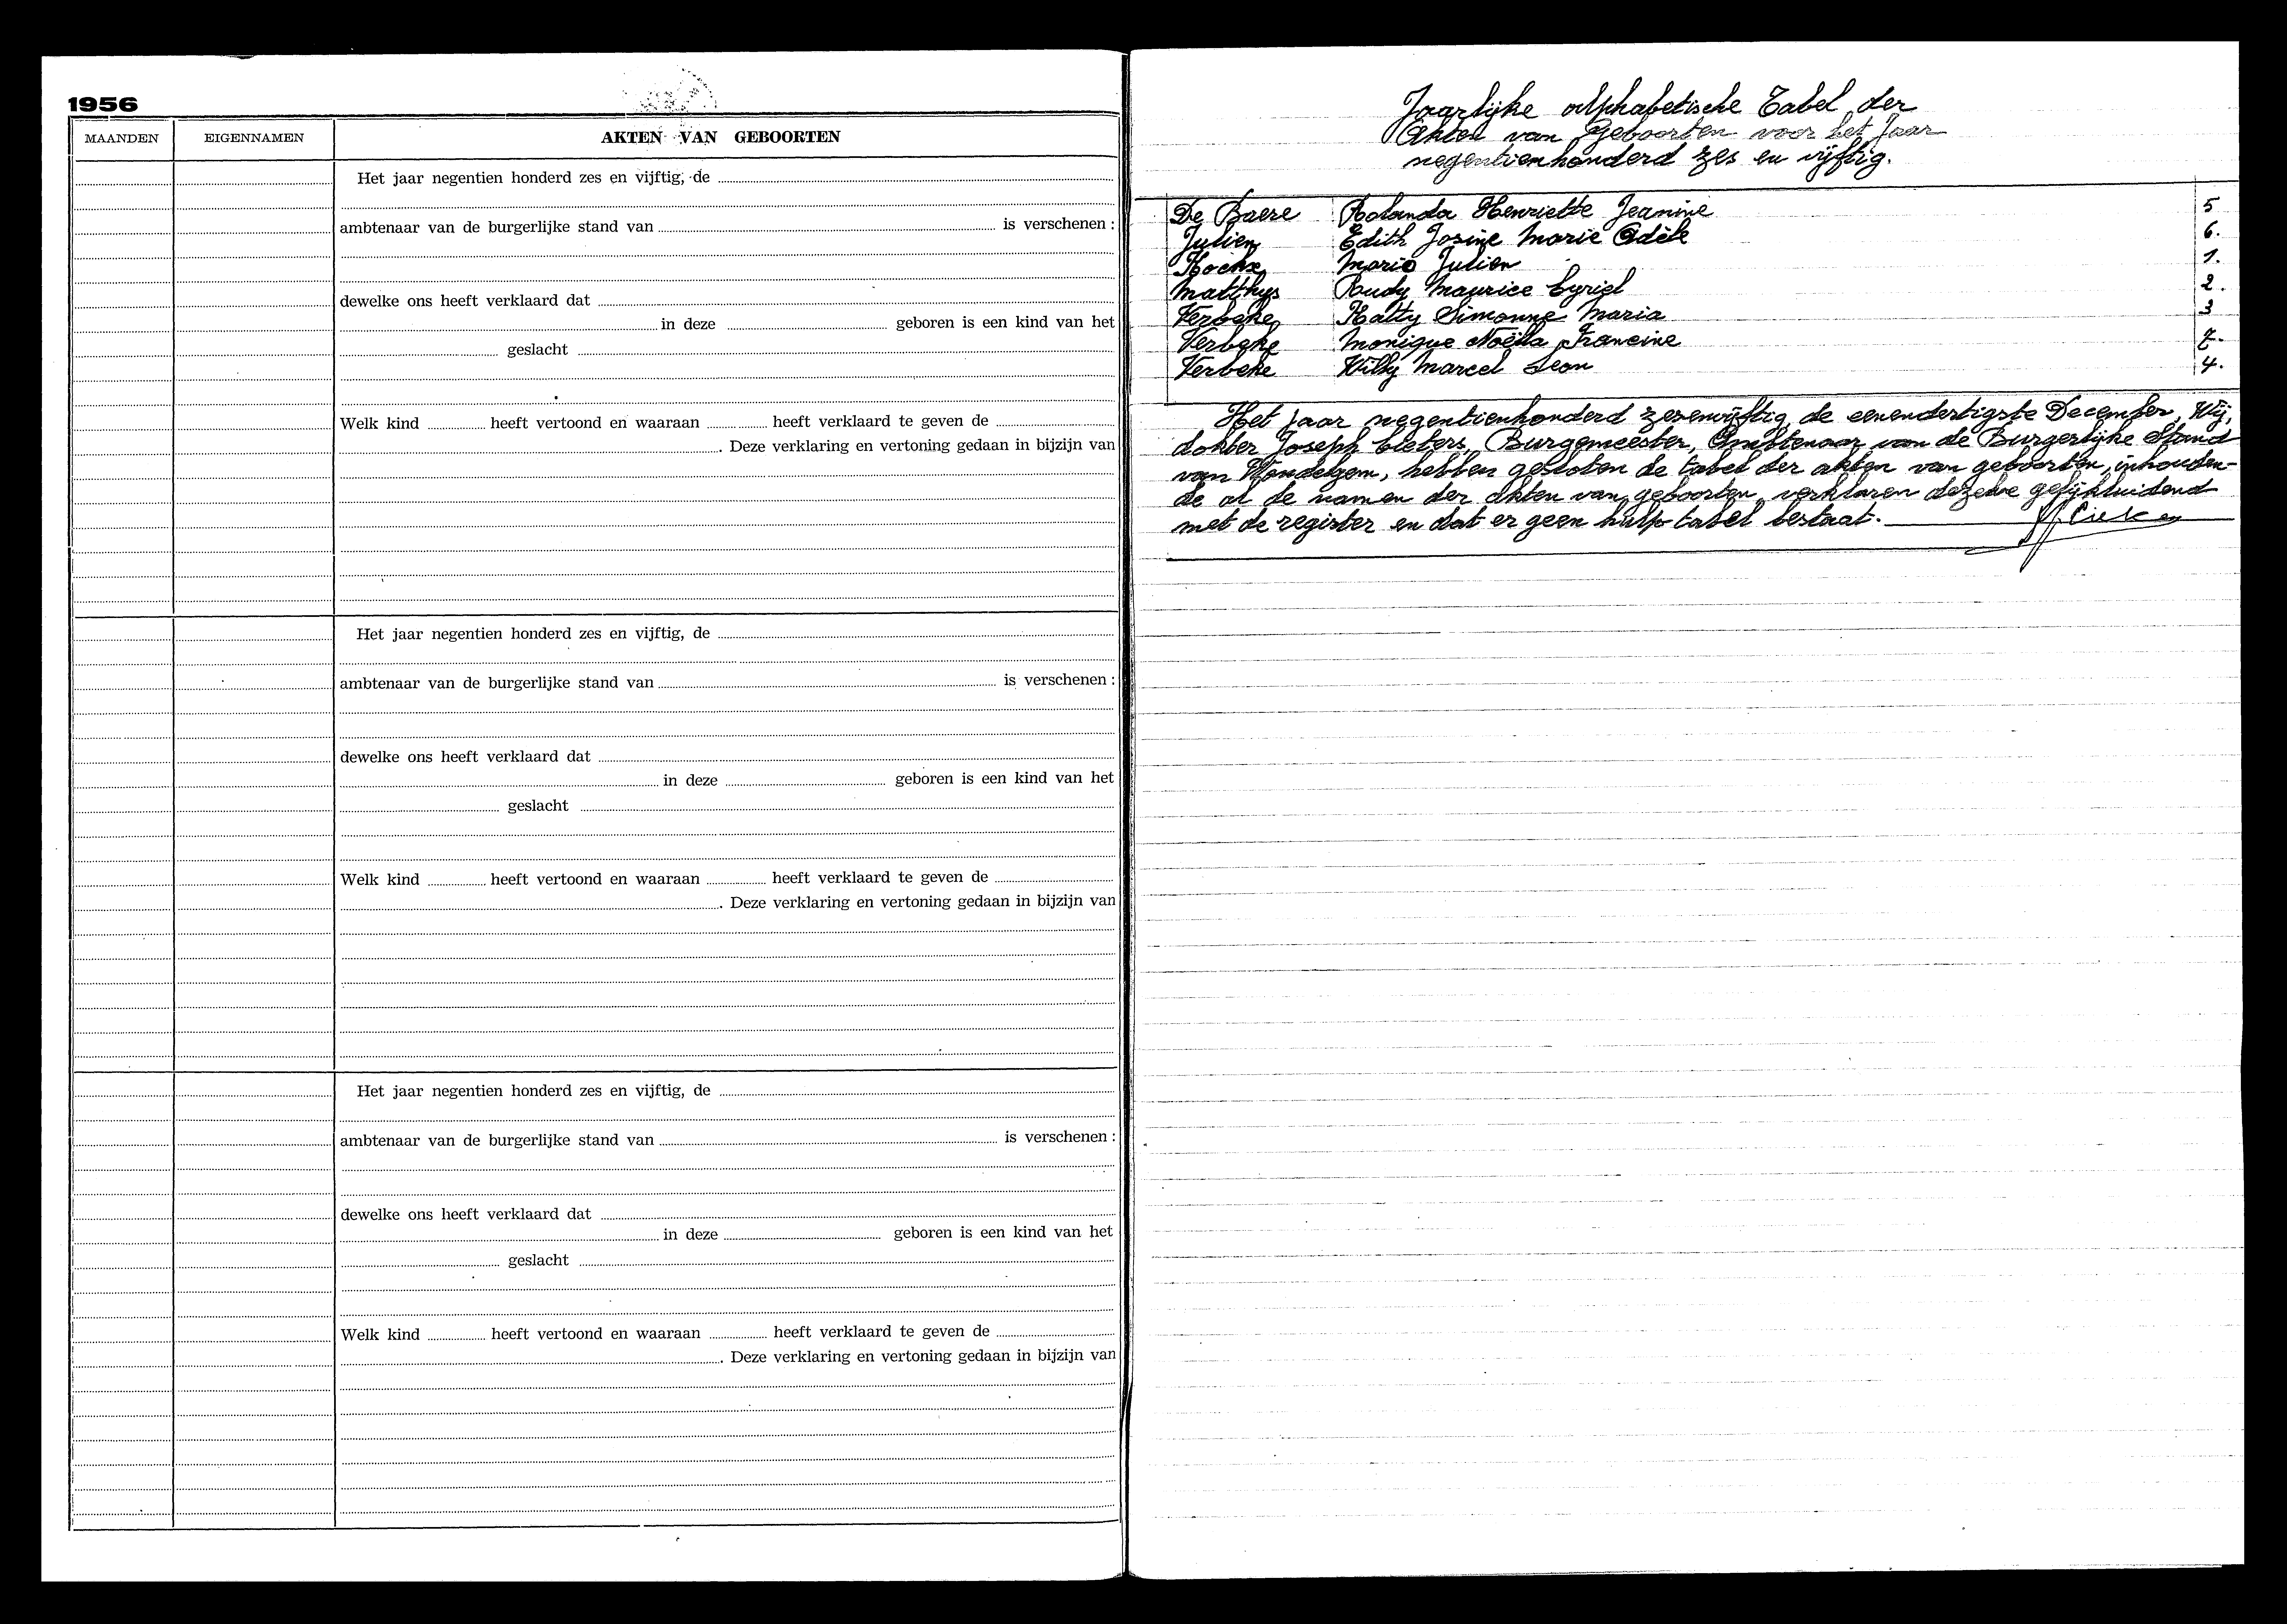 1956
MAANDEN EIGENNAMEN AKTEN VAN GEBOORTEN
Het jaar negentien honderd zes en vijftig, de
ambtenaar van de burgerlijke stand van is verschenen :
dewelke ons heeft verklaard dat
in deze geboren is een kind van het
geslacht
Welk kind heeft vertoond en waaraan heeft verklaard te geven de
. Deze verklaring en vertoning gedaan in bijzijn van
Het jaar negentien honderd zes en vijftig, de
ambtenaar van de burgerlijke stand van is verschenen :
dewelke ons heeft verklaard dat
in deze geboren is een kind van het
geslacht
Welk kind heeft vertoond en waaraan heeft verklaard te geven de
. Deze verklaring en vertoning gedaan in bijzijn van
Het jaar negentien honderd zes en vijftig, de
ambtenaar van de burgerlijke stand van is verschenen :
dewelke ons heeft verklaard dat
in deze geboren is een kind van het
geslacht
Welk kind heeft vertoond en waaraan heeft verklaard te geven de
. Deze verklaring en vertoning gedaan in bijzijn van
Jaarlijke Alphabetische Tabel der
Akten van Geboorten voor het Jaar
negentienhonderd zes en vijftig.
De Baere Rolanda Henriette Jeanine 5
Julien Edith Josine Marie Adèle 6.
Hockx Mario Julien 1.
Matthys Rudy Maurice Cyriel 2.
Verbeke Hatty Simonne Maria 3
Verbeke Monique Noëlla Francine 7.
Verbeke Willy Marcel Leon 4.
Het jaar negentienhonderd zesenvijftig de eenendertigste December, Wij,
dokter Joseph Cieters, Burgemeester, Ambtenaar van de Burgerlijke Stand
van Wondelgem, hebben gesloten de tabel der akten van geboorten, inhouden-
de al de namen der akten van geboorten, verklaren dezelve gelijkluidend
met de register en dat er geen hulp tabel bestaat.